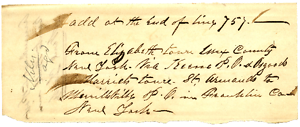 add at the End of Line 757.
From Elizabeth town Essex County
New York. Via Keene P. O.
Harriets town St Armands to
Merrillsville P. O. in Franklin Co
New York